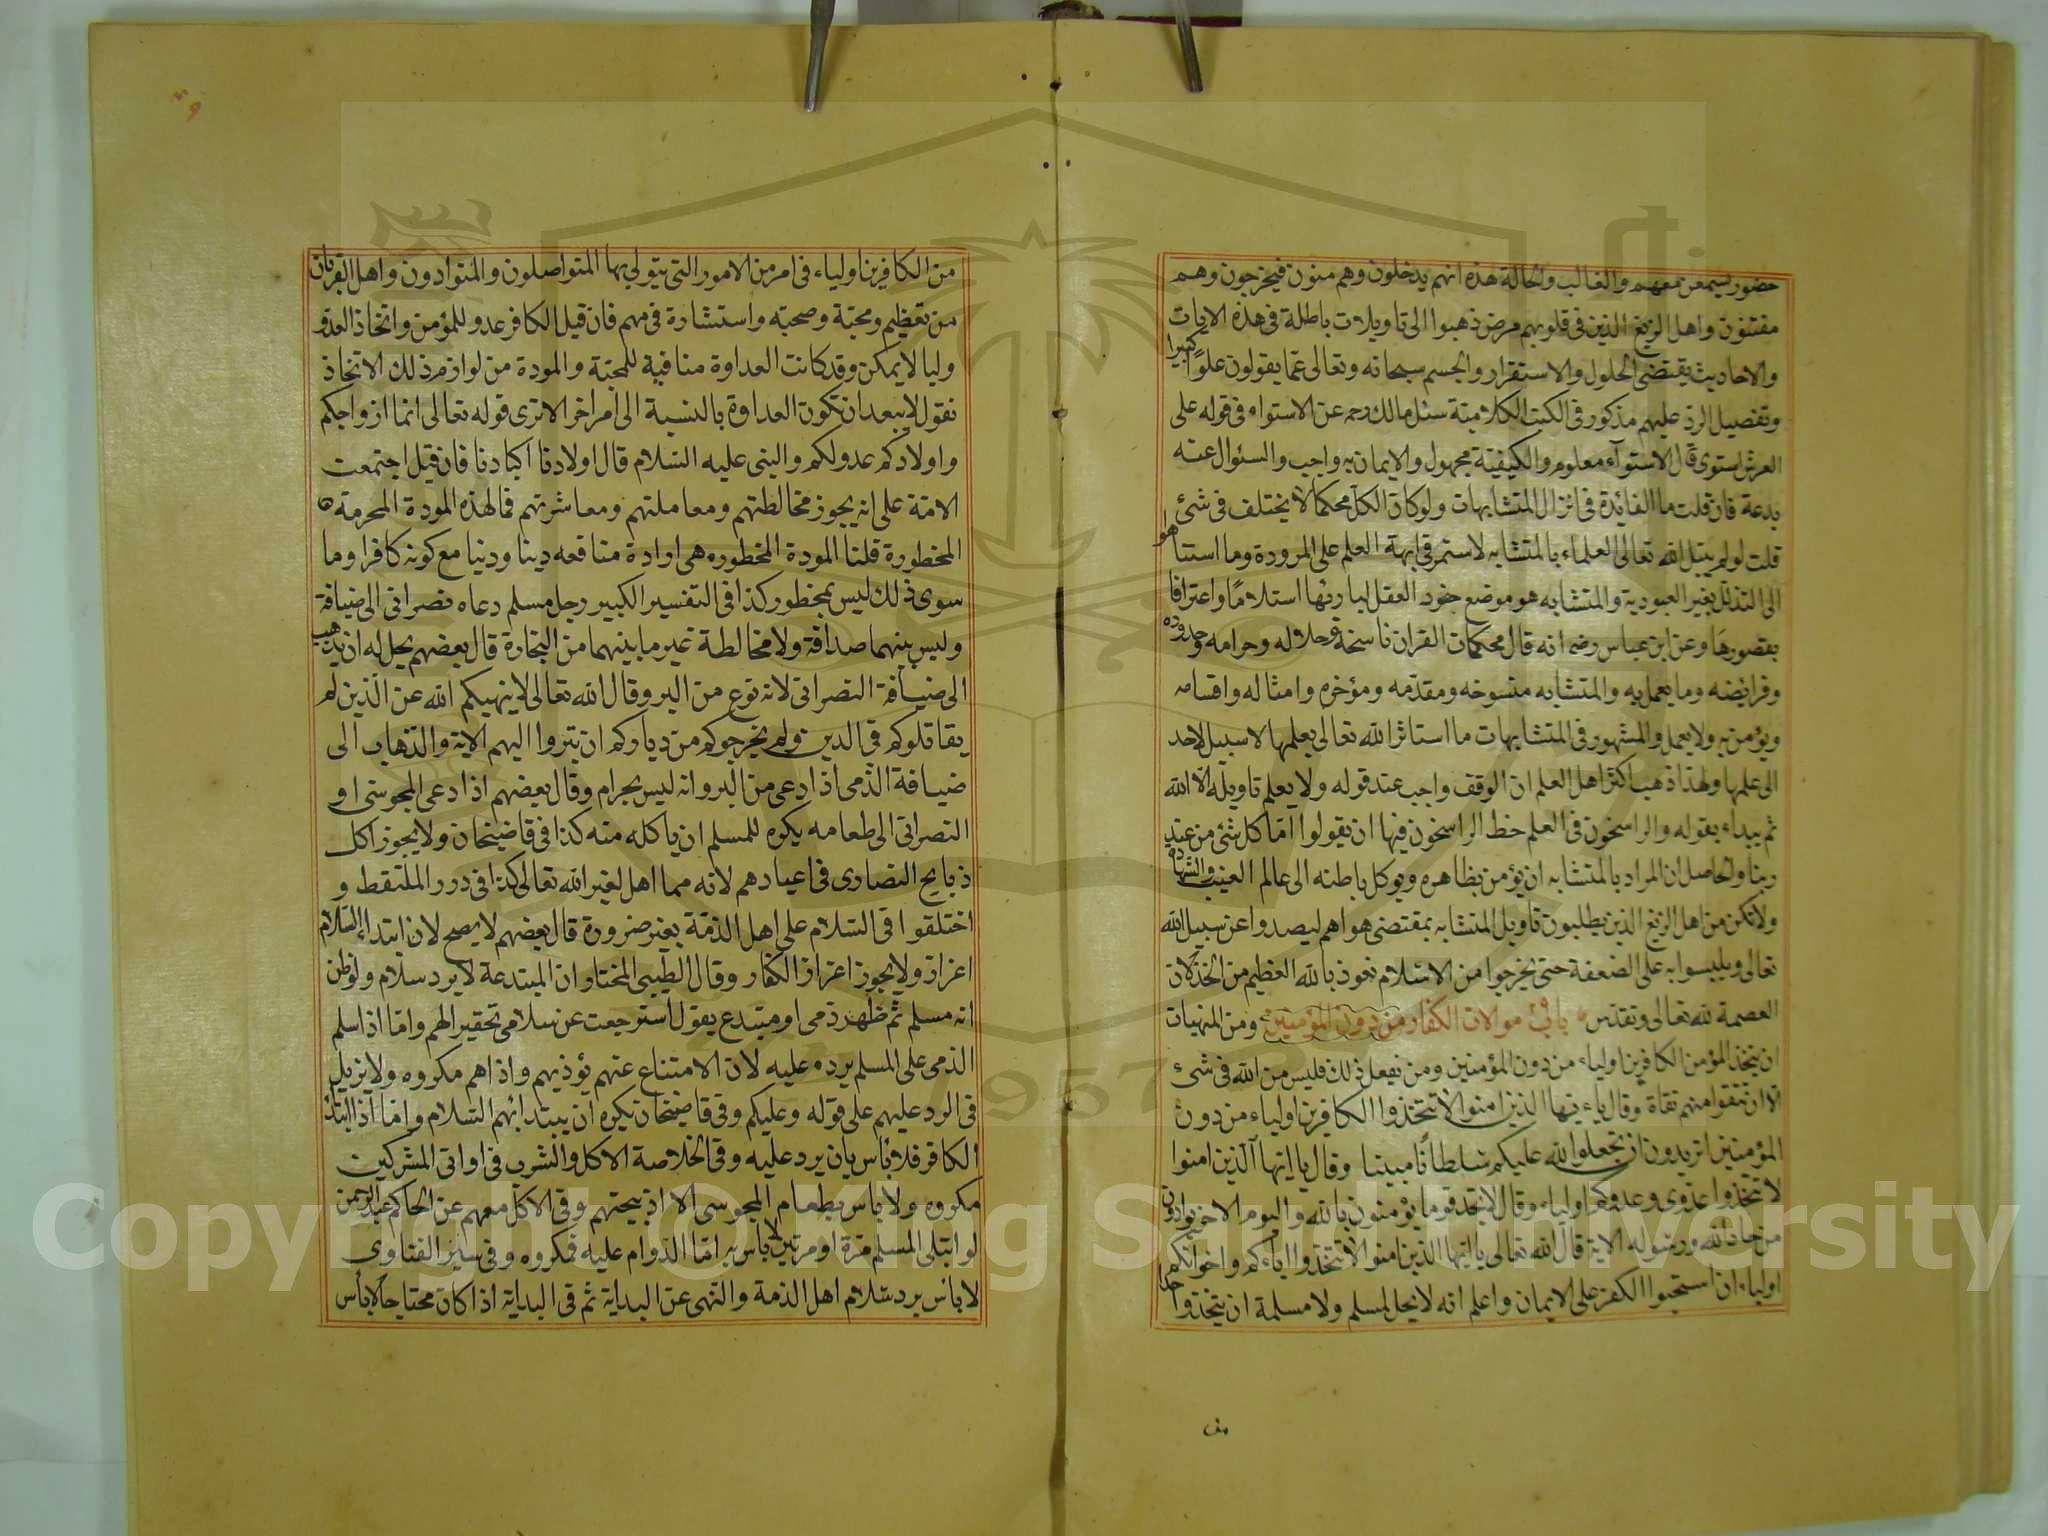 حضور يسمعن معهم والغالب والحالة هذه انهم يدخلون وهم منون فيخرجون وهم
مفتنون واهل الزيغ الذين فى قلوبهم مرض ذهبوا الى تاويلات باطلة فى هذه الايات
والاحاديث يقتضى الحلول والاستقرار والجسم سبحانه وتعالى عما يقولون علوًا كبيرا
وتفصيل الرد عليهم مذكور فى الكتب الكلامية سئل مالك رحمه عن الاستواء فى قوله على
العرش استوى قال الاستوآء معلوم والكيفية مجهول والايمان به واجب والسئوال عنه
بدعة فان قلت ما الفائدة فى انزال المتشابهات ولو كان الكل محكما لا يختلف فى شئ
قلت لو لم يبتل الله تعالى العلماء بالمتشابه لاستمر فى ابهة العلم على المرودة وما استنا هوا
الى التذلل بغير العبودية والمتشابه هو موضع خود العقل لبارئها استلامًا واعترافا
بقصورها وعن ابن عباس رضه انه قال محكمات القران ناسخة وحلاله وحرامه وحدوده
وفرائضه وما يعمل به والمتشابه منسوخه ومقدمه ومؤخره وامثاله واقسامه
ويؤمن به ولا يعمل والمشهور فى المتشابهات ما استاثر الله تعالى بعلمها لا سبيل لاحد
الى علمها ولهذا ذهب اكثر اهل العلم ان الوقف واجب عند قوله ولا يعلم تاويله الا الله
ثم يبداء بقوله والراسخون فى العلم حظ الراسخون فيها ان يقولوا آمنا كل شئ من عند
ربنا والحاصل ان المراد بالمتشابه ان يؤمن بظاهره ويوكل باطنه الى عالم الغيب والشهادة
ولا تكن من اهل الزيغ الذين يطلبون تاويل المتشابه بمقتضى هواهم ليصدوا عن سبيل الله
تعالى ويلبسوا به على الضعفة حتى يخرجوا من الاسلام نعوذ بالله العظيم من الخذلان
العصمة لله تعالى وتقدس باب فى موالات الكفار من دون المؤمنين ومن المنهيات
ان يتخذ المؤمن الكافرين اولياء من دون المؤمنين ومن يفعل ذلك فليس من الله فى شئ
الا ان تتقوا منهم تقاة وقال ياء يها الذين امنوا لا تتخذوا الكافرين اولياء من دون
المؤمنين اتريدون ان تجعلوا لله عليكم سلطانًا مبينا وقال يا ايها الذين امنوا
لا تتخذوا عدوى وعدوكم اولياء وقال لا تجد قوما يؤمنون بالله واليوم الاخر يوادون
من حاد الله ورسوله الاية قال الله تعالى يا ايها الذين امنوا لا تتخذوا اباءكم واخوانكم
اولياء ان استحبوا الكفر على الايمان واعلم انه لا يحل لمسلم ولا مسلمة ان يتخذوا احدا
من
من الكافرين اولياء فى امر من الامور التى يتولى بها المتواصلون والمتوادون واهل القربان
من تعظيم ومحبة وصحبته واستشارة فى مهم فان قيل الكافر عدو للمؤمن واتخاذ العدو
وليا لا يمكن وقد كانت العداوة منافية للمحبة والمودة من لوازم ذلك الاتخاذ
نقول لا يبعد ان تكون العداوة بالنسبة الى أمر اخر الا ترى قوله تعالى انما ازواجكم
واولادكم عدو لكم والنبى عليه السلام قال اولادنا اكبادنا فان قيل اجتمعت
الامة على انه يجوز مخالطتهم ومعاملتهم ومعاشرتهم فما لهذه المودة المحرمة
المخطورة قلنا المودة المخطوره هى ارادة منافعه دينا ودنيا مع كونه كافرا وما
سوى ذلك ليس بمخطور كذا فى التفسير الكبير رجل مسلم دعاه نصرانى الى ضيافة
وليس بينهما صداقة ولا مخالطة غير ما بينهما من التجارة قال بعضهم يحل له ان يذهب
الى ضيافة النصرانى لانه نوع من البر وقال الله تعالى لا ينهيكم الله عن الذين لم
يقاتلوكم فى الدين ولم يخرجوكم من دياركم ان تبروا اليهم الاية والذهاب الى
ضيافة الذمى اذا دعى من البر وانه ليس بحرام وقال بعضهم اذا دعى المجوسى او
النصرانى الى طعامه يكره للمسلم ان ياكله منه كذا فى قاضيخان ولا يجوز اكل
ذبايح النصارى فى اعيادهم لانه مما اهل لغير الله تعالى كذا فى درر الملتقط و
اختلفوا فى السلام على اهل الذمة بغير ضرورة قال بعضهم لا يصح لان ابتداء السلام
اعزاز ولا يجوز اعزاز الكفار وقال الطيبى المختار ان المبتدعة لا يرد سلام ولو ظن
انه مسلم ثم ظهر ذمى او مبتدع يقول استرجعت عن سلامى تحقيرا لهم واما اذا سلم
الذمى على المسلم يرده عليه لان الامتناع عنهم يؤذيهم واذاهم مكروه ولا يزيل
فى الرد عليهم على قوله وعليكم وفى قاضيخان يكره ان يبتدائهم السلام واما اذا ابتداء
الكافر فلا بأس بان يرد عليه وفى الخلاصة الاكل والشرب فى اوانى المشركين
مكروه ولا باس بطعام المجوسى الا اذبيحتهم وفى الاكل معهم عن الحاكم عبد الرحمن
لو ابتلى المسلم مرة او مرتين لا باس به اما الدوام عليه فمكروه وفى سير الفتاوى
لا باس برد سلام اهل الذمة والنهى عن البداية ثم فى البداية اذا كان محتاجا لا بأس
Copyright © King Saud University
1957